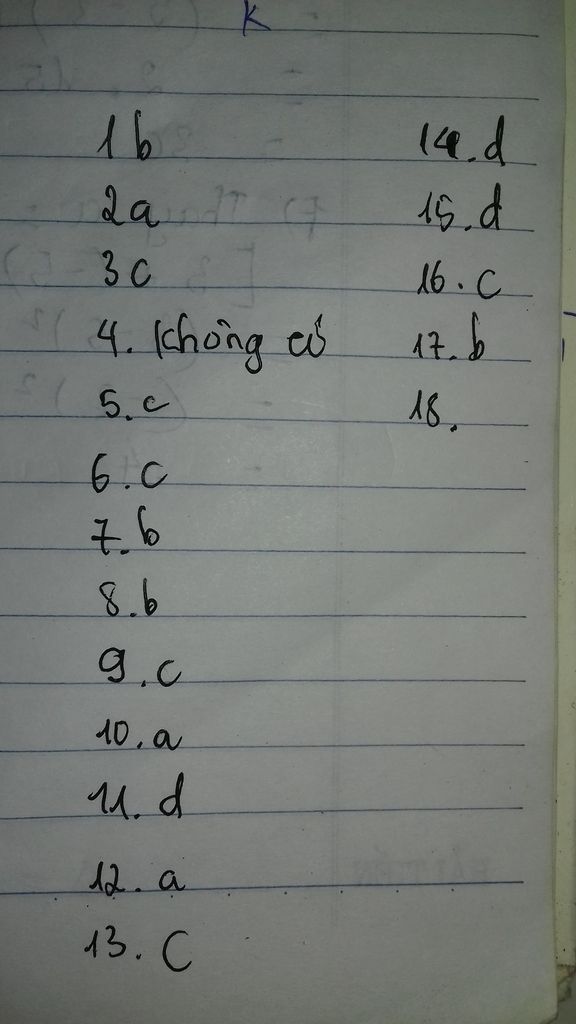 K
1 b
2 a
3 c
4. không có
5. c
6. c
7. b
8. b
9. c
10. a
11. d
12. a
13. C
14. d
15. d
16. c
17. b
18.